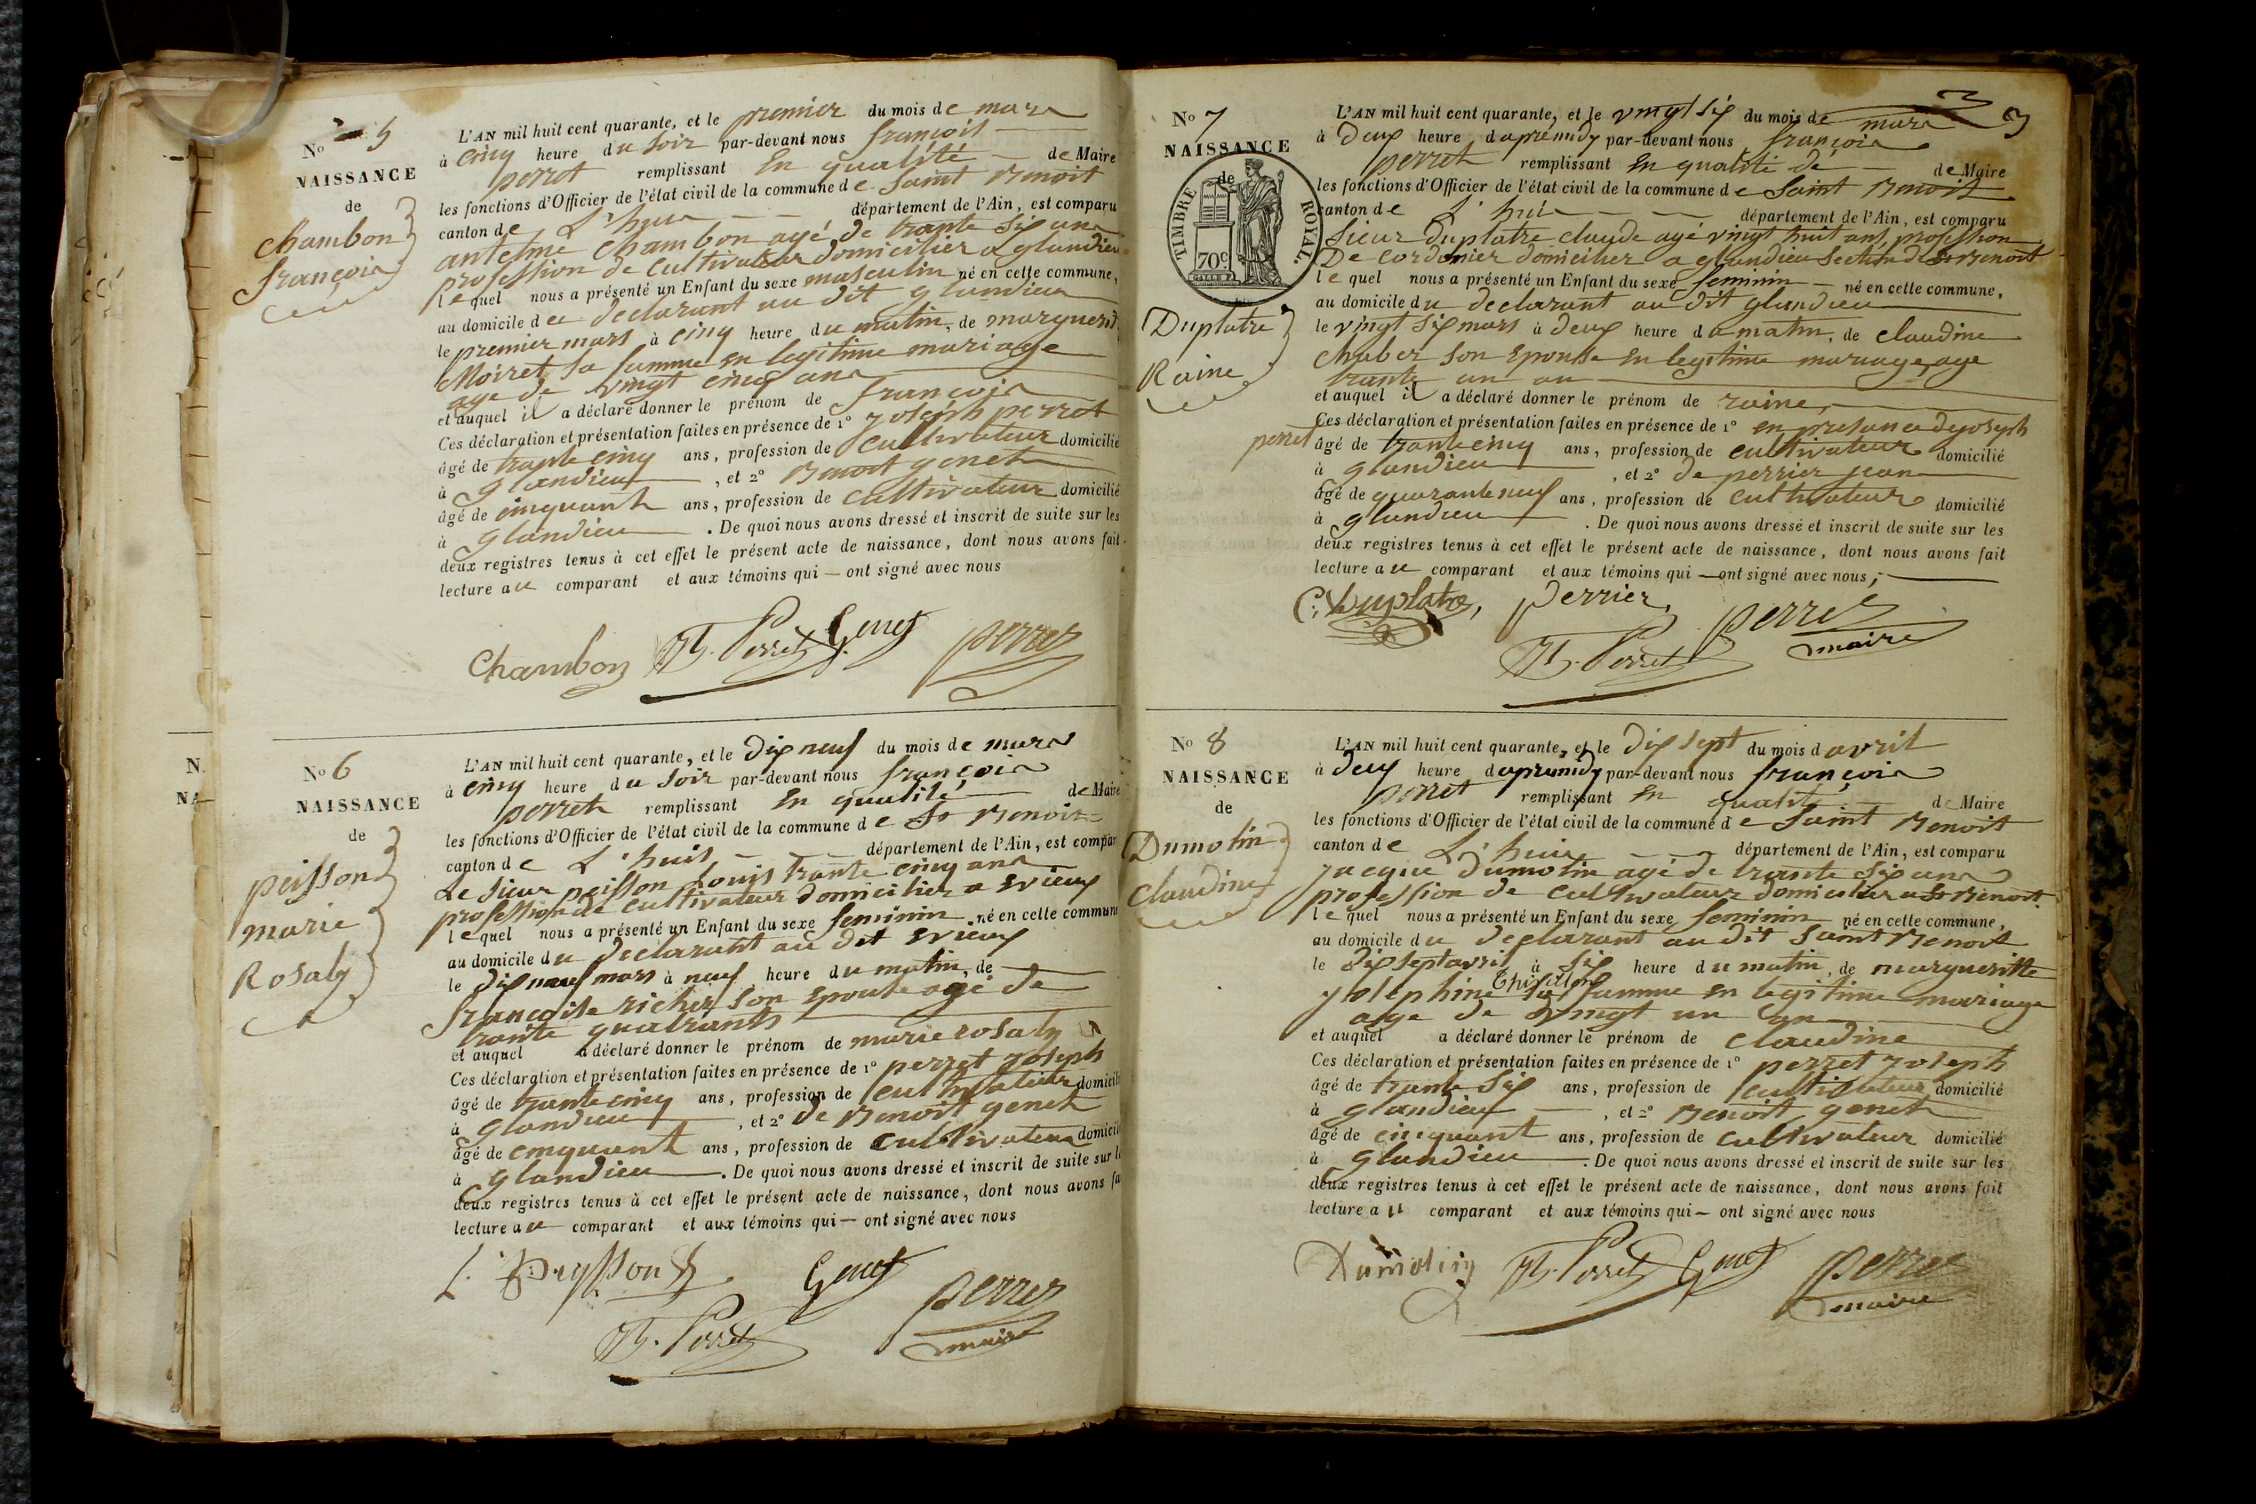 No 5
NAISSANCE
de
chambon
françois
L'AN mil huit cent quarante, et le premier du mois de mars
à cinq heure du soir par-devant nous françois
perret remplissant en qualité de Maire
les fonctions d'Officier de l'état civil de la commune de saint Benoit
canton de L'huis département de l'Ain, est comparu
antelme chambon agé de trante six ans
profession de cultivateur domicilier a glandieu
lequel nous a présenté un Enfant du sexe masculin né en cette commune,
au domicile du declarant au dit glandieu
le premier mars à cinq heure du matin, de marguerit
Moiret sa famme en legitime mariage
age de vingt cinq ans
et auquel il a déclaré donner le prénom de françois
Ces déclaration et présentation faites en présence de 1° joseph perret
âgé de trante cinq ans, profession de cultivateur domicilié
à glandieu, et 2° Benoit genet
âgé de cinquant ans, profession de cultivateur domicilié
à glandieu. De quoi nous avons dressé et inscrit de suite sur les
deux registres tenus à cet effet le présent acte de naissance, dont nous avons fait
lecture au comparant et aux témoins qui ont signé avec nous
Chambon Perret Genet perret
No 6
NAISSANCE
de
peisson
marie
Rosaly
L'AN mil huit cent quarante, et le dix neuf du mois de mars
à cinq heure du soir par-devant nous françois
perret remplissant en qualité de Maire
les fonctions d'Officier de l'état civil de la commune de St Benoit
canton de L'huis département de l'Ain, est compar
Le sieur peisson Louis trante cinq ans
profession de cultivateur domicilier a evieux
lequel nous a présenté un Enfant du sexe feminin né en cette commune
au domicile du declarant au dit evieux
le dix neuf mars à neuf heure du matin, de
françoise richer son epouse agé de
trante quatrants
et auquel a déclaré donner le prénom de marie rosaly
Ces déclaration et présentation faites en présence de 1° perret joseph
âgé de trante cinq ans, profession de cultivateur domicili
à glandieu, et 2° de Benoit genet
âgé de cinquant ans, profession de cultivateur domicili
à glandieu. De quoi nous avons dressé et inscrit de suite sur le
deux registres tenus à cet effet le présent acte de naissance, dont nous avons fa
lecture au comparant et aux témoins qui ont signé avec nous
L. Peysson Genet perret
Perret maire
3
3
No 7
NAISSANCE
de
TIMBRE ROYAL.
70c
Duplatre
Raine
L'AN mil huit cent quarante, et le vingt six du mois de mars
à deux heure d aprémidy par-devant nous françois
perret remplissant en qualité de de Maire
les fonctions d'Officier de l'état civil de la commune de saint Benoit
canton de L'huis département de l'Ain, est comparu
sieur duplatre claude agé vingt huit ans, profession
De cordonier domicilier a glandieu section de St Benoit
lequel nous a présenté un Enfant du sexe feminin né en cette commune,
au domicile du declarant au dit glandieu
le vingt six mars à deux heure du matin, de claudine
chaber son epouse en legitime mariage, age
trante un an
et auquel il a déclaré donner le prénom de raine,
Ces déclaration et présentation faites en présence de 1° en presance de joseph
perret âgé de trante cinq ans, profession de cultivateur domicilié
à glandieu, et 2° de perrier jean
âgé de quarante neuf ans, profession de cultivateur domicilié
à glandieu. De quoi nous avons dressé et inscrit de suite sur les
deux registres tenus à cet effet le présent acte de naissance, dont nous avons fait
lecture au comparant et aux témoins qui ont signé avec nous,
C. Duplatre, perrier, perret
Perret maire
No 8
NAISSANCE
de
Dumolin
claudine
L'AN mil huit cent quarante, et le dix sept du mois d avril
à deux heure d aprémidy par-devant nous françois
perret remplissant en qualité de Maire
les fonctions d'Officier de l'état civil de la commune de saint Benoit
canton de L'huis département de l'Ain, est comparu
jacque dumolin agé de trante six ans
profession de cultivateur domicilier a St Benoit
lequel nous a présenté un Enfant du sexe feminin né en cette commune,
au domicile du declarant au dit saint Benoit
le dix sept avril à six heure du matin, de margueritte
josephine sa famme en legitime mariage
age de vingt un an
et auquel a déclaré donner le prénom de claudine
Ces déclaration et présentation faites en présence de 1° perret joseph
âgé de trante six ans, profession de cultivateur domicilié
à glandieu, et 2° Benoit genet
âgé de cinquant ans, profession de cultivateur domicilié
à glandieu. De quoi nous avons dressé et inscrit de suite sur les
deux registres tenus à cet effet le présent acte de naissance, dont nous avons fait
lecture au comparant et aux témoins qui ont signé avec nous
Dumolin Perret Genet perret
maire